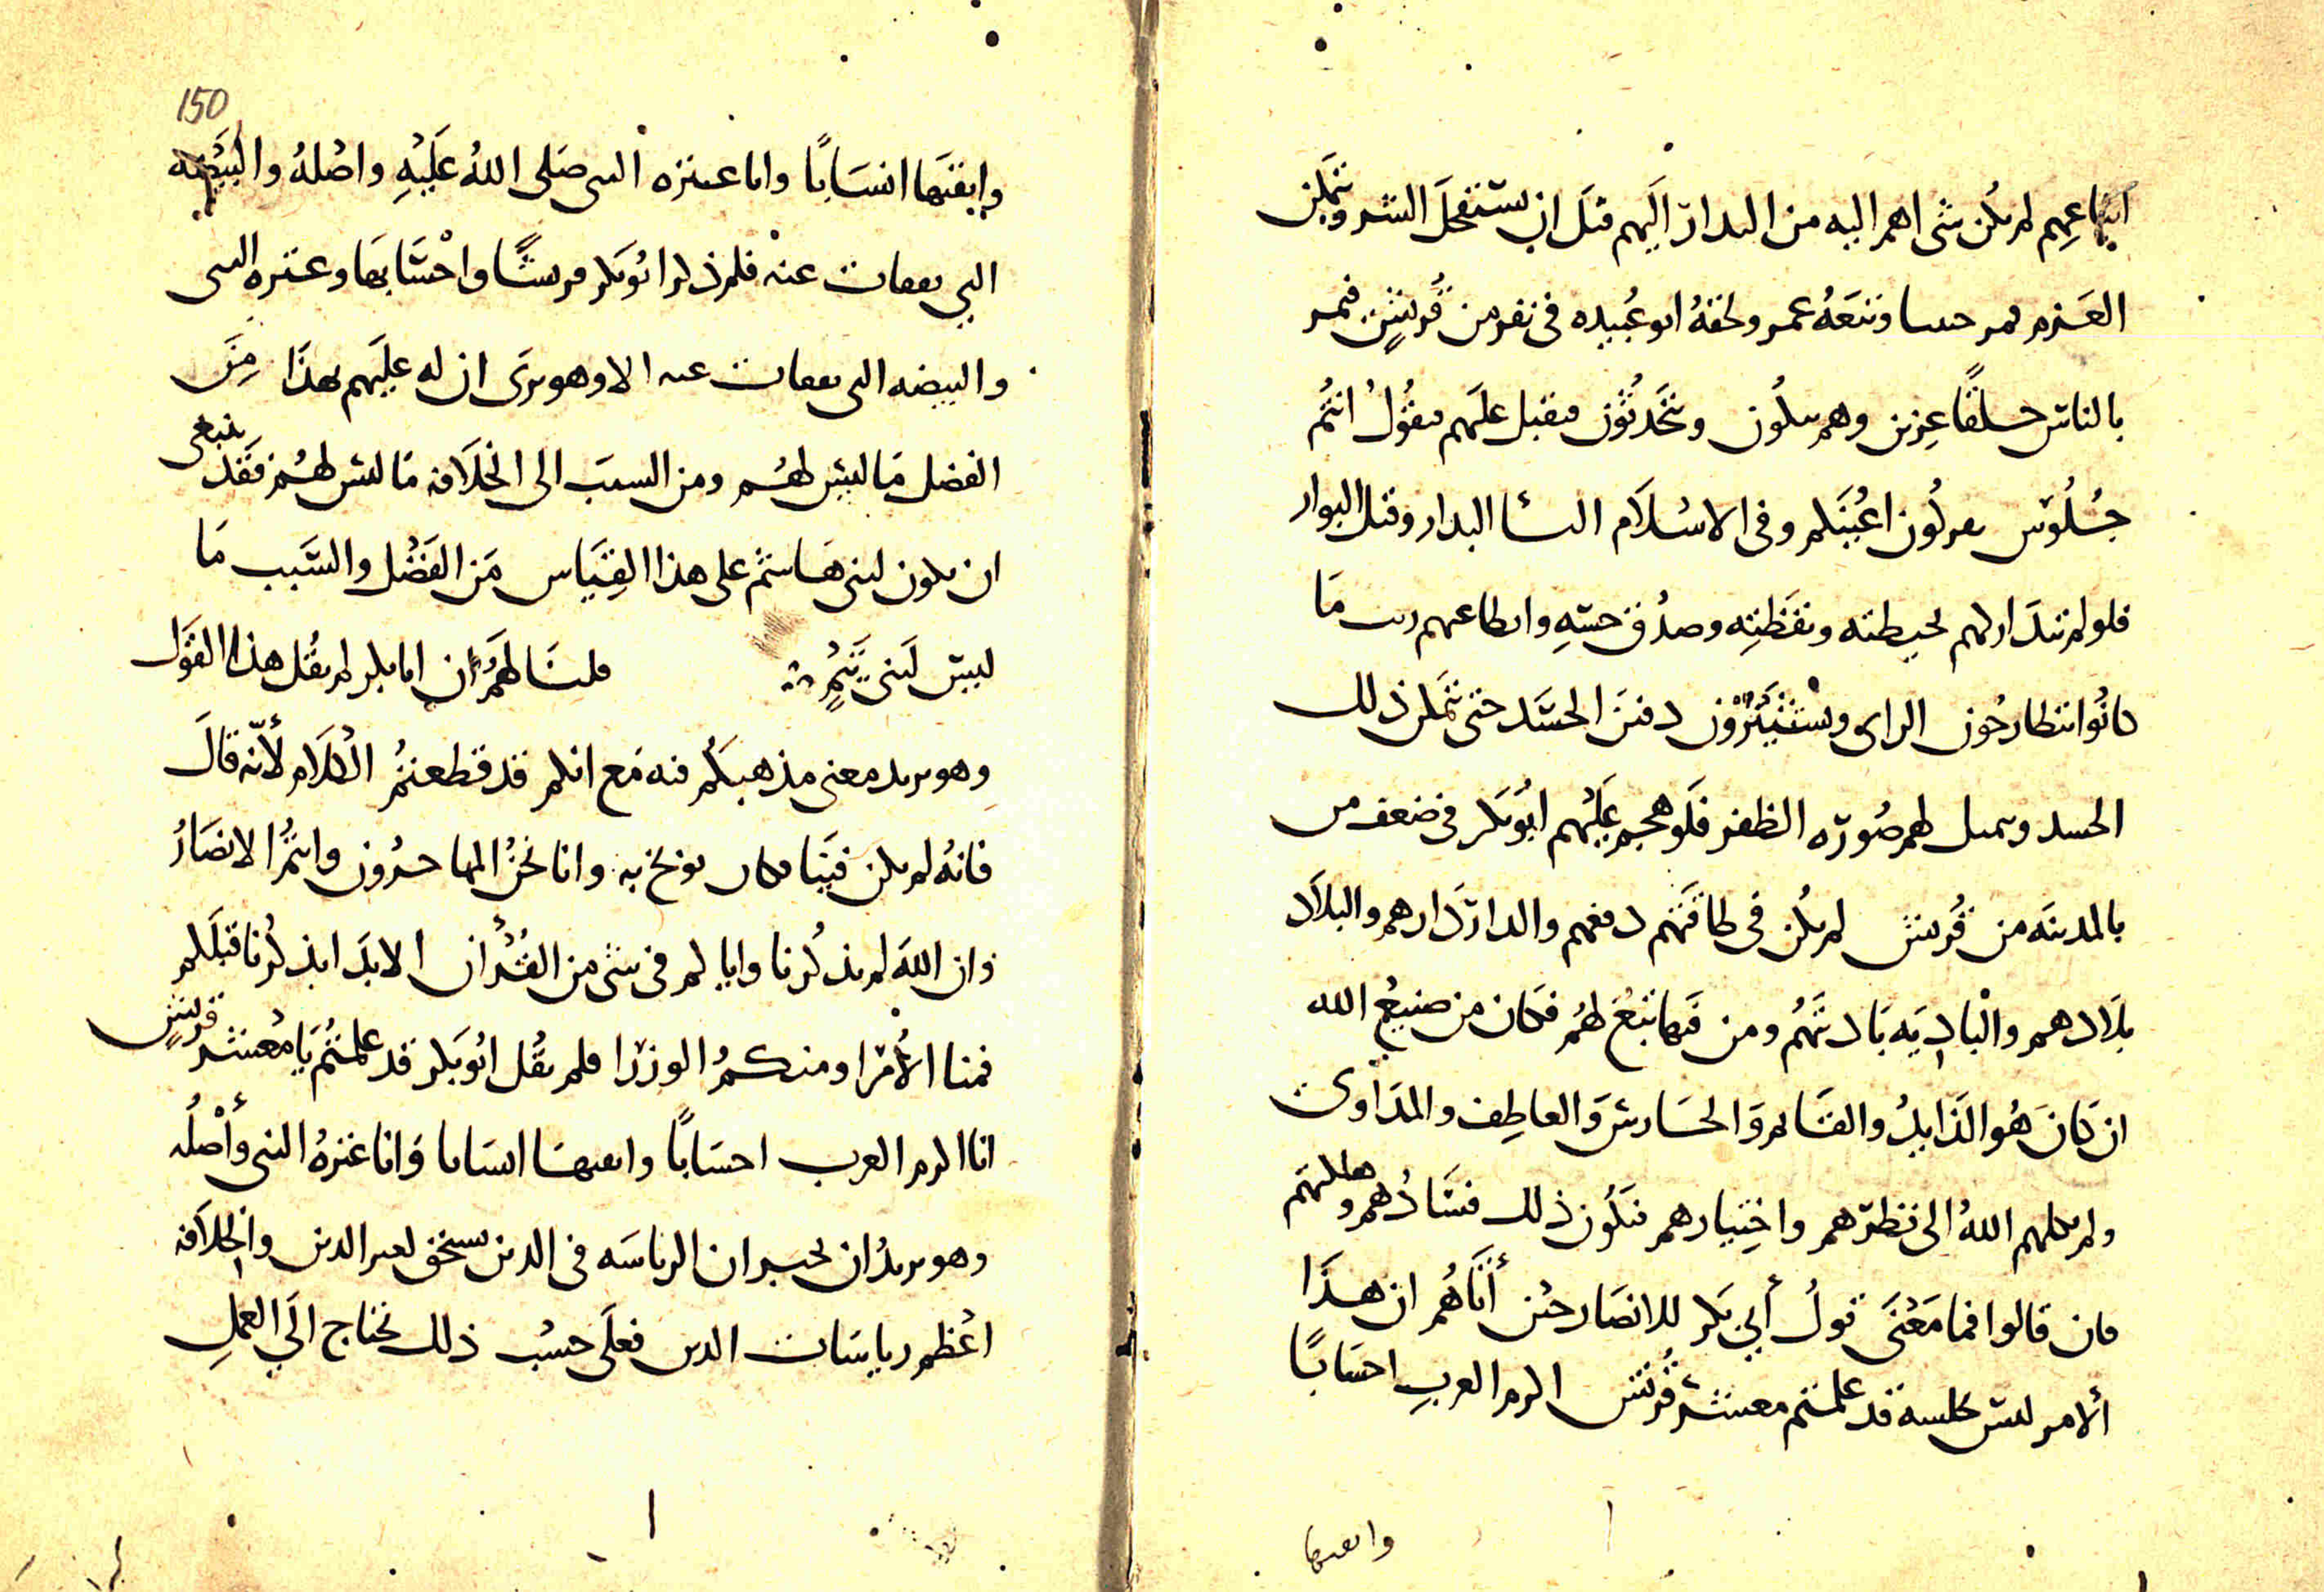 اتباعهم لم يكن شى اهم اليه من البدار اليهم قبل ان يستفحل الشر ويتمكن
العزم فمر حثيثا وتبعه عمر ولحقه ابو عبيده فى نفر من قريش فمر
بالناس حلقا عزين وهم يبكون ويتحدثون فيقبل عليهم فيقول انتم
جلوس تعركون اعينكم وفى الاسلام البدار وقبل البوار
فلو لم يتداركهم بحيطته ويقظته وصدق حسه وابطا عنهم ريث ما
كانوا ينتظارحون الراى ويستثيرون دفين الحسد حتى تمكن ذلك
الحسد وتمثل لهم صوره الظفر فلو هجم عليهم ابو بكر فى ضعف من
بالمدينه من قريش لم يكن فى طاقتهم دفعهم والدار دارهم والبلاد
بلادهم والباديه باديتهم ومن فيها تبع لهم فكان من صنيع الله
ان كان هو الذايد والقايم والحارس والعاطف والمداوى
ولم يكلهم الله الى نظرهم واختيارهم فيكون ذلك فسادهم وهلكتهم
فان قالوا فما معنى قول أبي بكر للانصار حين أتاهم ان هذا
ألامر ليس بخلسة قد علمتم معشر قريش اكرم العرب احسابا
وايقنها
150
وايقنها انسابا وانا عترة النبى صلى الله عليه واصله والبيضه
التي تفقات عنه فلم يذكر ابو بكر قريشا واحسابها وعترة النبى
والبيضه التى تفقات عنه الا وهو يرى ان له عليهم بهذا من
الفضل ما ليس لهم ومن السبب الى الخلافه ما ليس لهم فقد ينبغى
ان يكون لبنى هاشم على هذا القياس من الفضل والسبب ما
ليس لبنى تيم قلنا لهم ان ابا بكر لم يقل هذا القول
وهو يريد معنى مذهبكم فيه مع انكم قد قطعتم الكلام لأنه قال
فانه لم يكن فينا بذخ به وانا نحن المهاجرون وانتم الانصار
وان الله لم يذكرنا واياكم فى شى من القرأن الا بدا بذكرنا قبلكم
فمنا الأمرا ومنكم الوزرا فلم يقل ابو بكر قد علمتم يا معشر قريش
انا اكرم العرب احسابا وايقنها انسابا وانا عترة النبى وأصله
وهو يريد ان يخبر ان الرياسه فى الدين تستحق بغير الدين والخلافه
اعظم رياسات الدين فعلى حسب ذلك تحتاج الي العمل